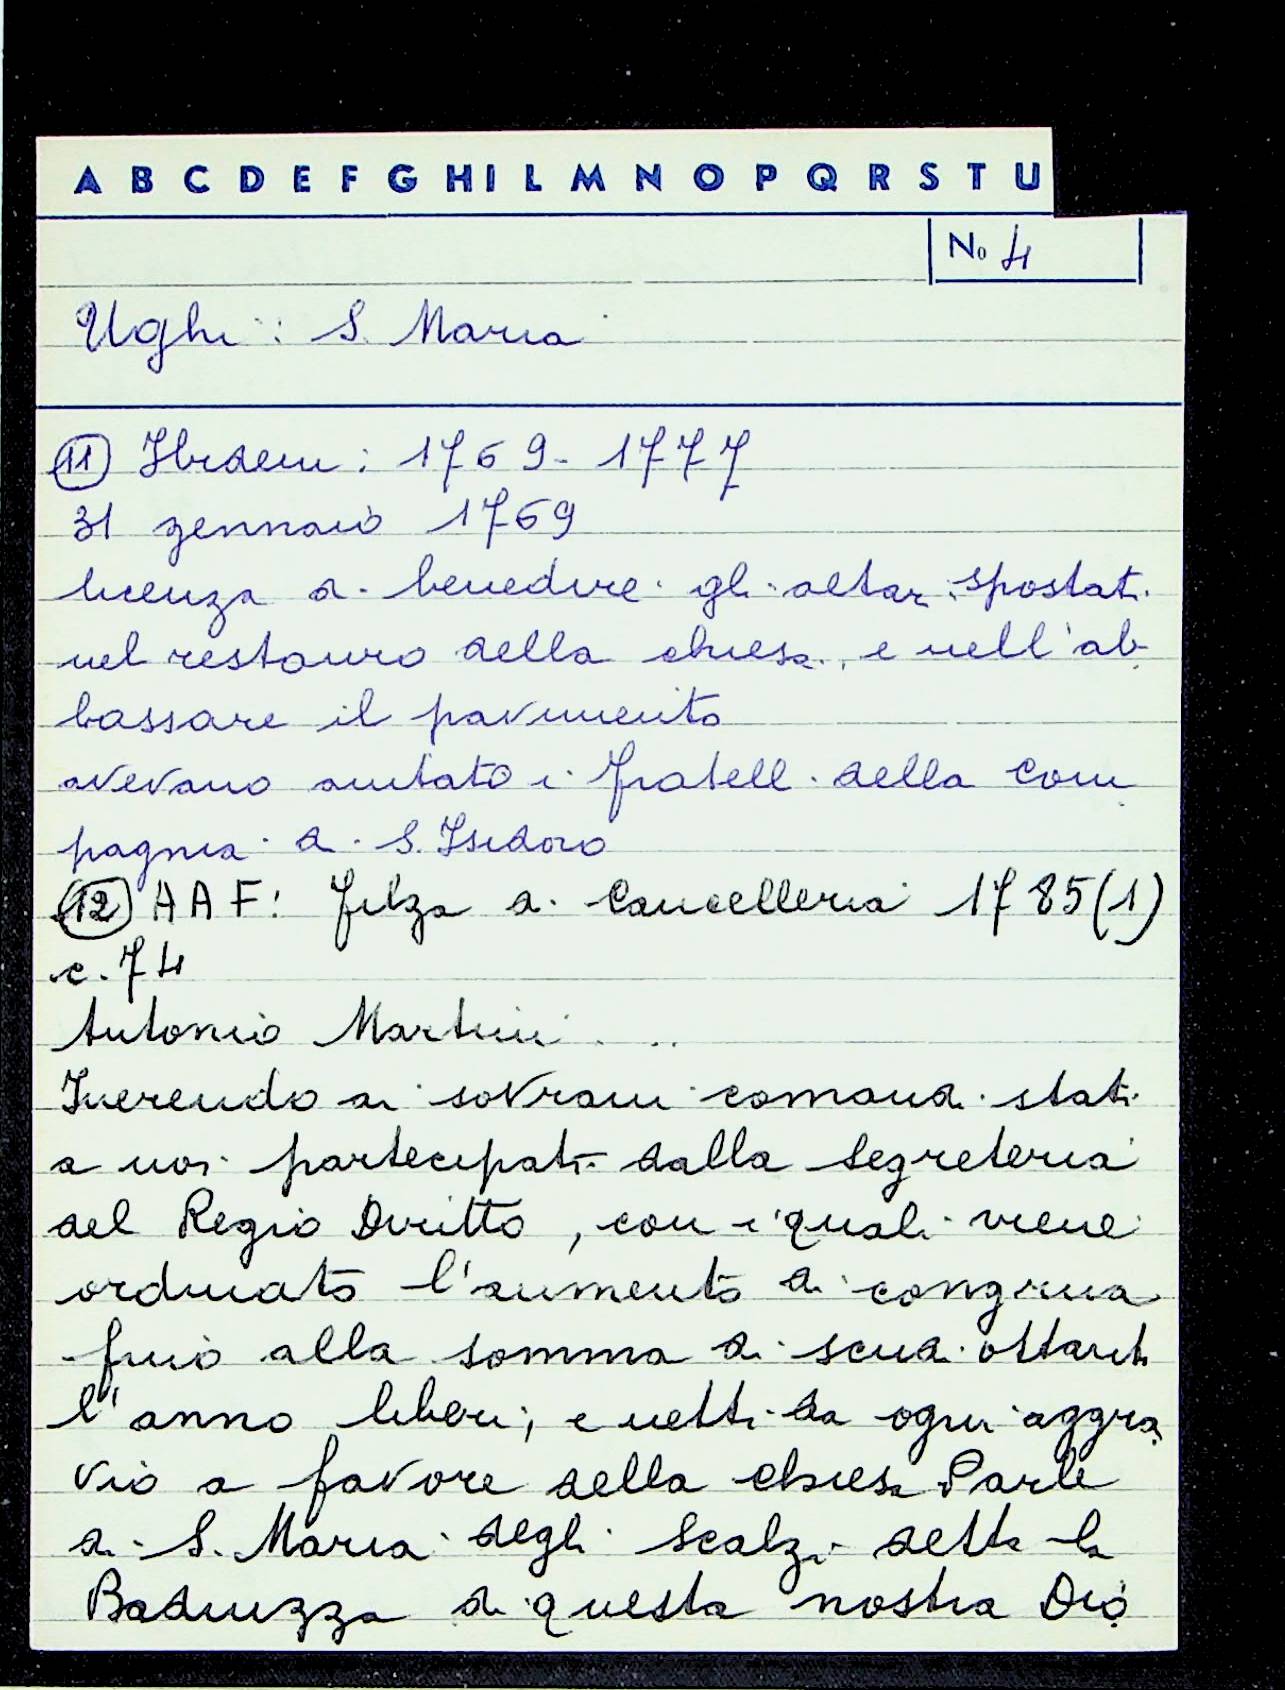 A B C D E F G H I L M N O P Q R S T U
No 4
Ughi: S. Maria
(11) Ibidem: 1769-1777
31 gennaio 1769
licenza di benedire gli altari spostati
nel restauro della chiesa, e nell'ab-
bassare il pavimento
avevano aiutato i fratelli della com
pagnia di S. Isidoro
(12) AAF: filza di Cancelleria 1785(1)
c. 74
Antonio Martini...
Inerendo ai sovrani comandi stati
a noi partecipati dalla Segreteria
del Regio Diritto, con i quali viene
ordinato l'aumento di congrua
fino alla somma di scudi ottanta
l'anno liberi, e netti da ogni aggra
vio a favore della chiesa Parle
di S. Maria degli Scalzi detta la
Badiuzza di questa nostra Dio